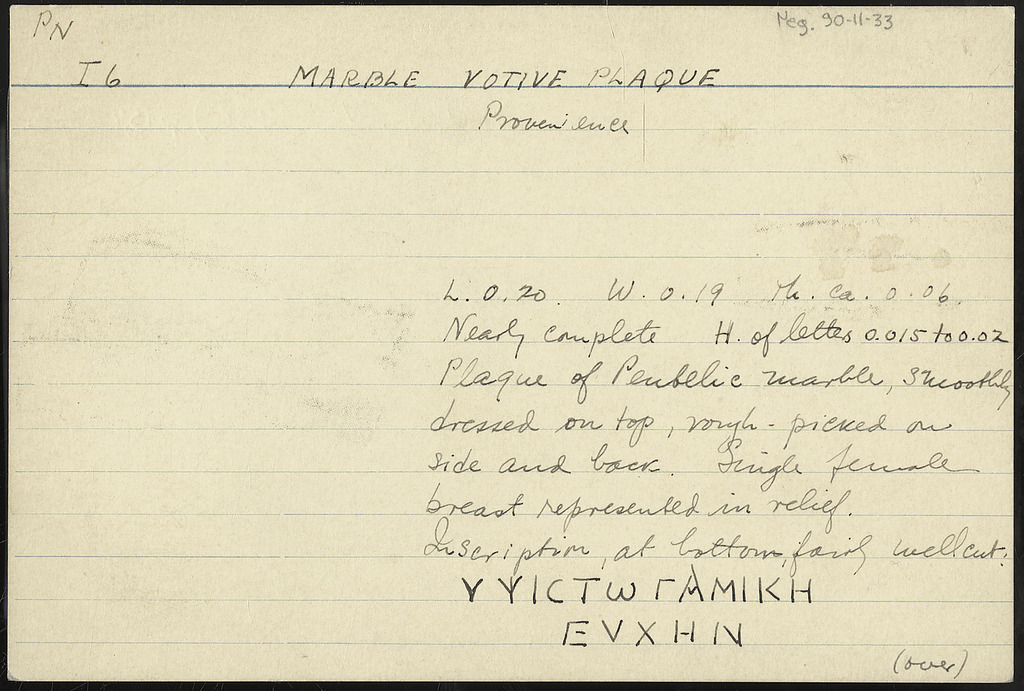 PN
Neg. 90-11-33
I 6 MARBLE VOTIVE PLAQUE
Provenience
L. 0.20. W. 0.19 Th. ca. 0.06.
Nearly complete H. of letters 0.015 to 0.02
Plaque of Pentelic marble, smoothly
dressed on top, rough-picked on
side and back. Single female
breast represented in relief.
Inscription, at bottom, fairly well cut:
ΥΥΙϹΤωΓΑΜΙΚΗ
ΕVΧΗΝ
(over)